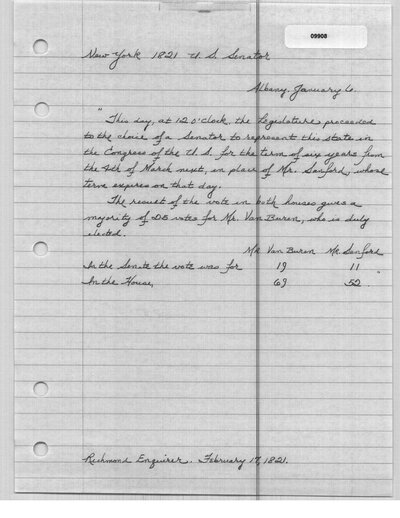 09908
New York 1821 U.S. Senator
Albany, January 6.
"This day, at 12 O'Clock, the Legislature proceeded
to the choice of a Senator to represent this state in
the Congress of the U.S. for the term of six years from
the 4th of March next, in place of Mr. Sanford, whose
term expires on that day.
The result of the vote in both houses gives a
majority of 25 votes for Mr. Van Buren, who is duly
elected.
Mr. Van Buren Mr. Sanford
In the Senate the vote was for 19 11
In the House, 69 52 "
Richmond Enquirer. February 17, 1821.